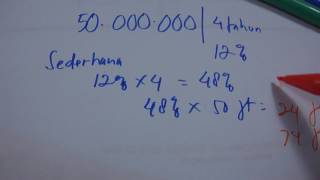 50.000.000 | 4 tahun
12%
Sederhana
12% × 4 = 48%
48% × 50 jt = 24 j
74 j